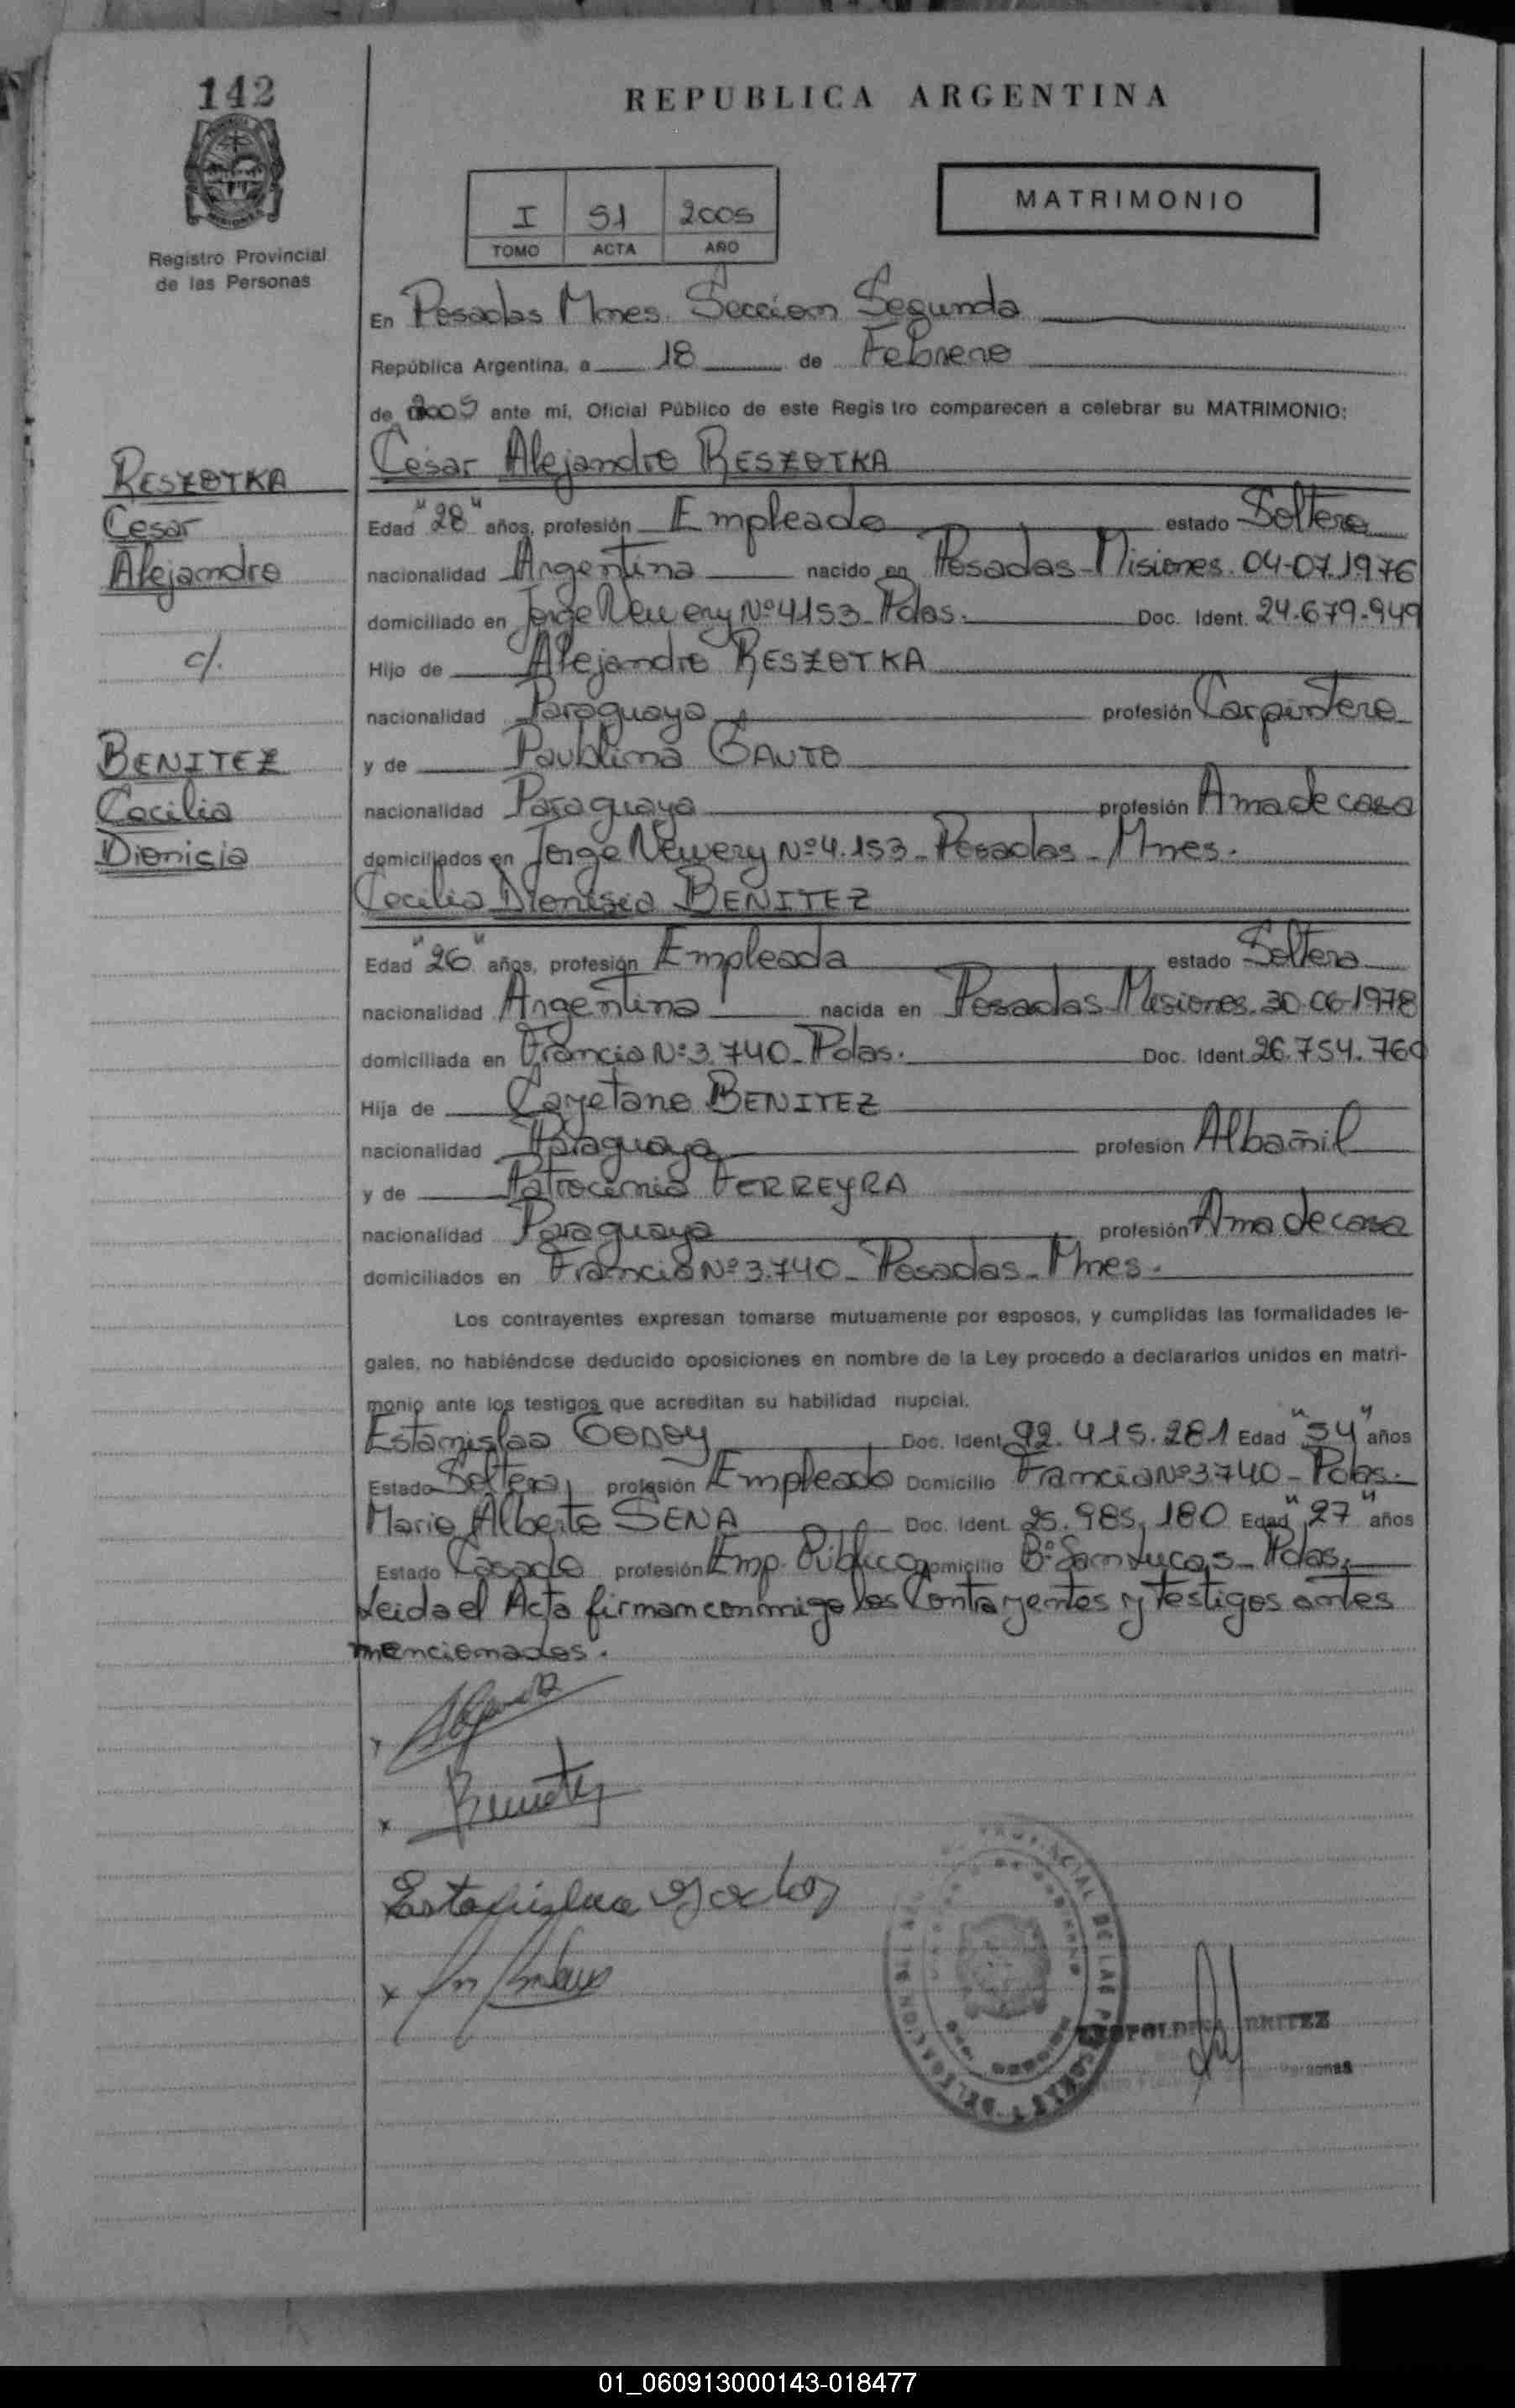 142
REPUBLICA ARGENTINA
MATRIMONIO
I 51 2005
TOMO ACTA AÑO
Registro Provincial
de las Personas
En Posadas Mnes. Seccion Segunda
República Argentina, a 18 de Febrero
de 2005 ante mi, Oficial Público de este Regis tro comparecen a celebrar su MATRIMONIO:
RESZOTKA
Cesar
Alejandro
c/.
BENITEZ
Cecilia
Dionisia
Cesar Alejandro RESZOTKA
Edad "28" años, profesión Empleado estado Soltero
nacionalidad Argentina nacido en Posadas-Misiones. 04-07.1976
domiciliado en Jorge Newery Nº4153-Pdas. Doc. Ident. 24.679.949
Hijo de Alejandro RESZOTKA
nacionalidad Paraguaya profesión Carpintero
y de Paublina GAUTO
nacionalidad Paraguaya profesión Ama de casa
domiciliados en Jorge Newery Nº4.153-Posadas-Mnes.
Cecilia Dionisia BENITEZ
Edad "26" años, profesión Empleada estado Soltera
nacionalidad Argentina nacida en Posadas-Misiones. 30-06-1978
domiciliada en Francia Nº3.740-Pdas. Doc. Ident. 26.754.760
Hija de Cayetano BENITEZ
nacionalidad Paraguaya profesión Albañil
y de Patrocinia FERREYRA
nacionalidad Paraguaya profesión Ama de casa
domiciliados en Francia Nº3.740-Posadas-Mnes.
Los contrayentes expresan tomarse mutuamente por esposos, y cumplidas las formalidades le-
gales, no habiéndose deducido oposiciones en nombre de la Ley procedo a declararlos unidos en matri-
monio ante los testigos que acreditan su habilidad nupcial.
Estanislaa GODOY Doc. Ident. 92.415.281 Edad "54" años
Estado Soltera profesión Empleado Domicilio Francia Nº3740-Pdas.
Mario Alberto SENA Doc. Ident. 25.985.180 Edad "27" años
Estado Casado profesión Emp. Público Domicilio Bº San Lucas-Pdas.
Leida el Acta firman conmigo los Contrayentes y Testigos antes
mencionados.
x
x Benitez
Estanislaa Godoy
x
PROVINCIAL DE LAS PERSONAS
01_060913000143-018477